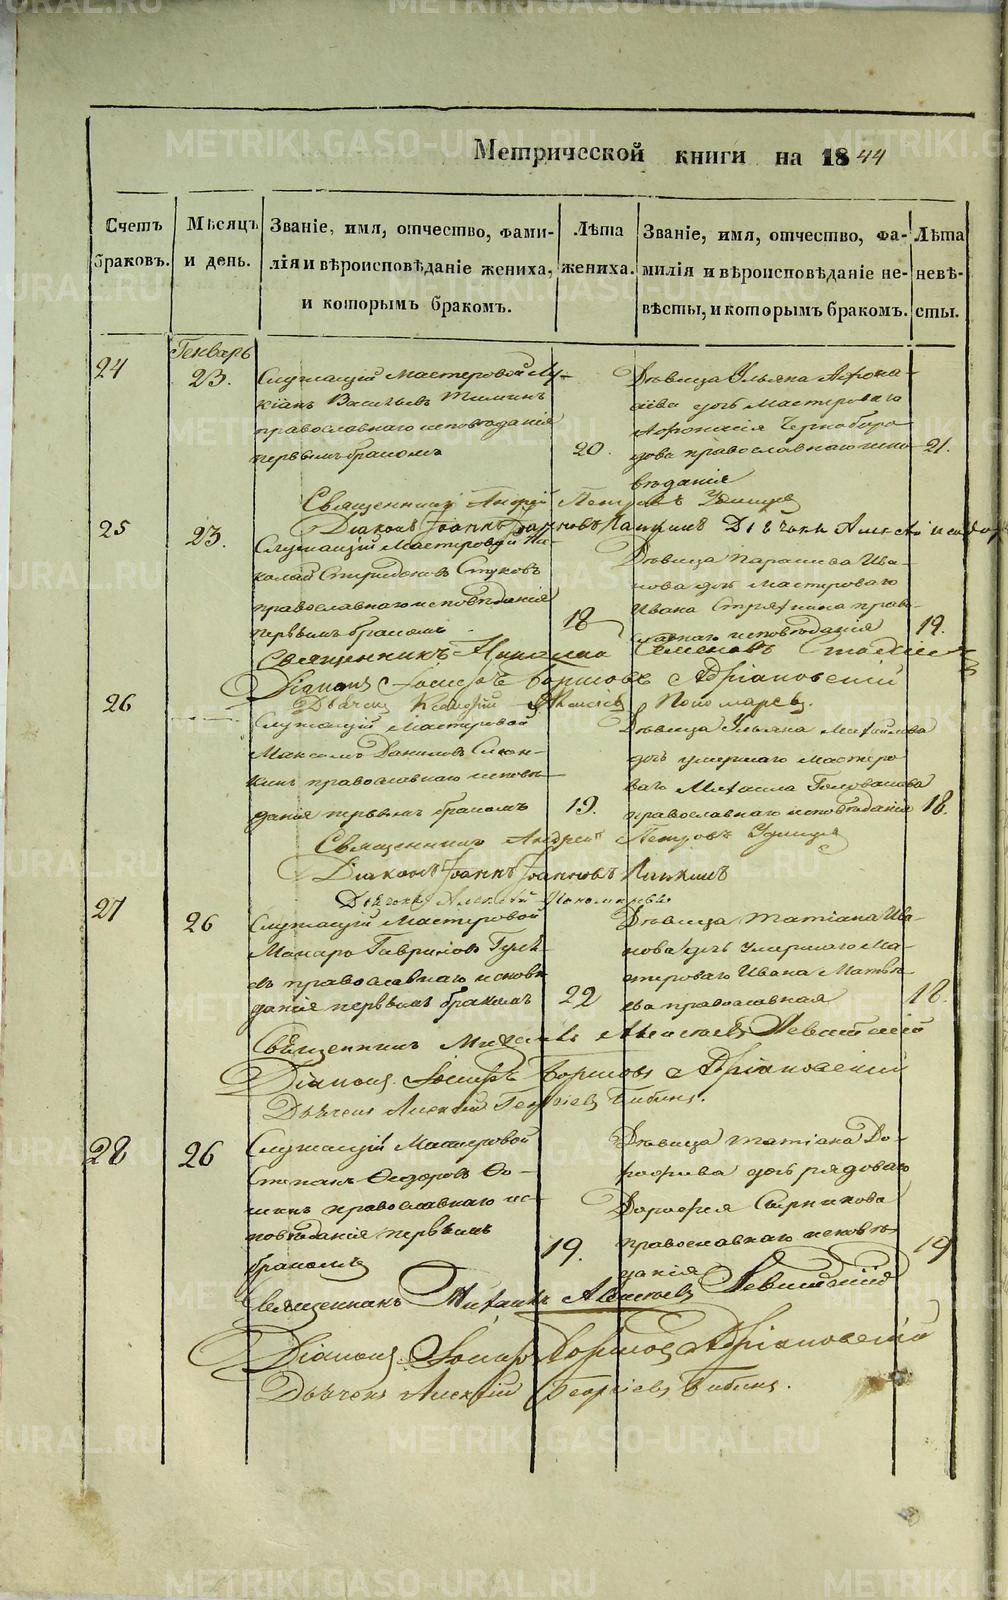 Метрической книги на 1844
Счетъ браковъ.
Мѣсяцъ и день.
Званіе, имя, отчество, фами-
лія и вѣроисповѣданіе жениха,
и которымъ бракомъ.
Лѣта жениха.
Званіе, имя, отчество, фа-
милія и вѣроисповѣданіе не-
вѣсты, и которымъ бракомъ.
Лѣта невѣ-
сты.
Генварь
24
23.
Служащій Мастеровой Лу-
кіанъ Васильевъ
православнаго исповѣданія
первымъ бракомъ
20.
Дѣвица Ульяна Афона-
сіева дочь Мастероваго
Афонасія Черноборо-
дова православнаго испо-
вѣданія
21.
Священникъ Андрей Петровъ Удинцев
Діаконъ Іоаннъ Іоанновъ Дьячокъ
25
23.
Служащій Мастеровой Ни-
колай Спиридоновъ Стуковъ
православнаго исповѣданія
первымъ бракомъ
18
Дѣвица Парасковa Ива-
нова дочь Мастероваго
Ивана право-
славнаго исповѣданія
19.
Священникъ Николай Семеновъ
Діаконъ Іосифъ Борисовъ Адріановскій
Дьячекъ Пономаревъ.
26
Служащій Мастеровой
Максимъ Даниловъ
православнаго исповѣ-
данія первымъ бракомъ
19.
Дѣвица Ульяна Михайлова
дочь умершаго Мастеро-
ваго Михаила Голованова
православнаго исповѣданія
18.
Священникъ Андрей Петровъ Удинцев
Діаконъ Іоаннъ Іоанновъ
Дьячекъ Алексѣй Пономаревъ
27
26
Служащій Мастеровой
Макаръ Гавриловъ
православнаго исповѣ-
данія первымъ бракомъ
22
Дѣвица Татіана Ива-
нова дочь умершаго Ма-
стероваго Ивана Матвѣ-
ева православная
18.
Священникъ Михаилъ Левитскій
Діаконъ Іосифъ Борисовъ Адріановскій
Дьячекъ Алексій Георгіевъ Бибинъ.
28
26
Служащій Мастеровой
Степанъ Ѳедоровъ Ѳо-
минъ православнаго ис-
повѣданія первымъ
бракомъ
19.
Дѣвица Татіана До-
рофеева дочь рядоваго
Дорофея Сырникова
православнаго исповѣ-
данія
19
Священникъ Михаилъ Левитскій
Діаконъ Іосифъ Борисовъ Адріановскій
Дьячекъ Алексій Георгіевъ Бибинъ.
METRIKI.GASO-URAL.RU